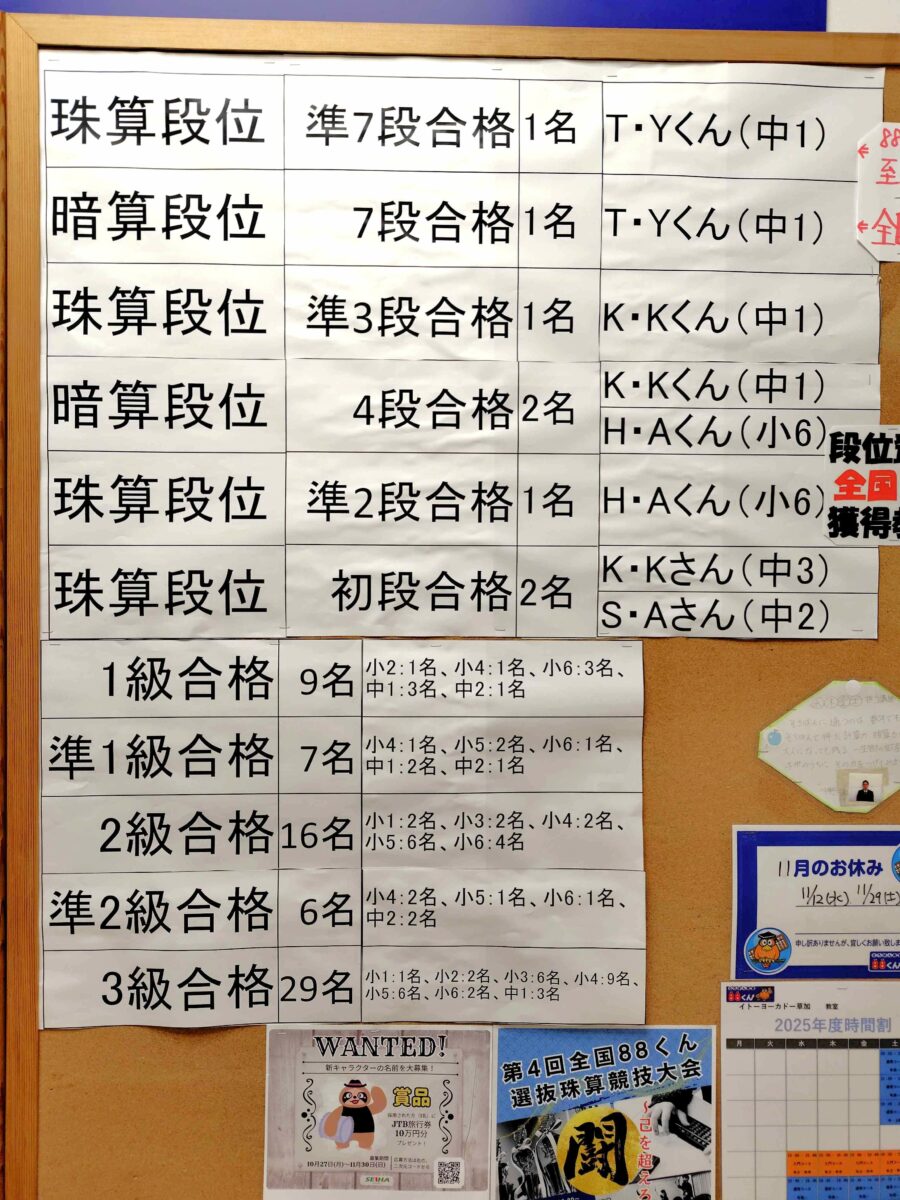 珠算段位 準7段合格 1名 T・Yくん(中1)
暗算段位 7段合格 1名 T・Yくん(中1)
珠算段位 準3段合格 1名 K・Kくん(中1)
暗算段位 4段合格 2名 K・Kくん(中1)
H・Aくん(小6)
珠算段位 準2段合格 1名 H・Aくん(小6)
珠算段位 初段合格 2名 K・Kさん(中3)
S・Aさん(中2)
1級合格 9名 小2:1名、小4:1名、小6:3名、
中1:3名、中2:1名
準1級合格 7名 小4:1名、小5:2名、小6:1名、
中1:2名、中2:1名
2級合格 16名 小1:2名、小3:2名、小4:2名、
小5:6名、小6:4名
準2級合格 6名 小4:2名、小5:1名、小6:1名、
中2:2名
3級合格 29名 小1:1名、小2:2名、小3:6名、小4:9名、
小5:6名、小6:2名、中1:3名
88
至
全
段位
全国
獲得
11月のお休み
11/12(水) 11/29(土)
申し訳ありませんが、宜しくお願い致しま
88くん
88くん
イトーヨーカドー草加 教室
2025年度時間割
月 火 水 木 金 土
WANTED!
新キャラクターの名前を大募集!
賞品
JTB旅行券
10万円分
プレゼント!
募集期間
10月27日(月)~11月30日(日)
SEIHA
第4回全国88くん
選抜珠算競技大会
闘
~己を超える